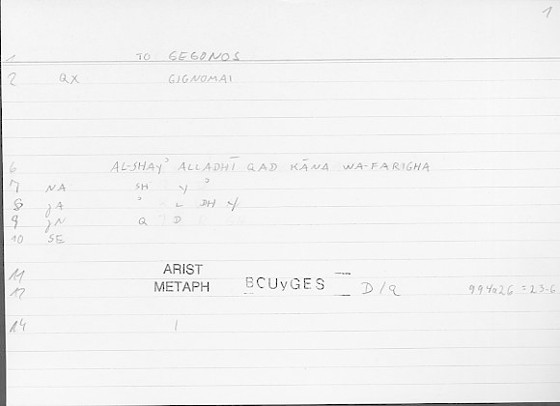 1
1 TO GEGONOS
2 QX GIGNOMAI
6 AL-SHAYʾ ALLADHĪ QAD KĀNA WA-FARIGHA
7 NA SH Y ʾ
8 jA ʾ L DH Y
9 jN Q D
10 SE
11 ARIST
12 METAPH BCUyGES D/q 994a26 = 23.6
14 1